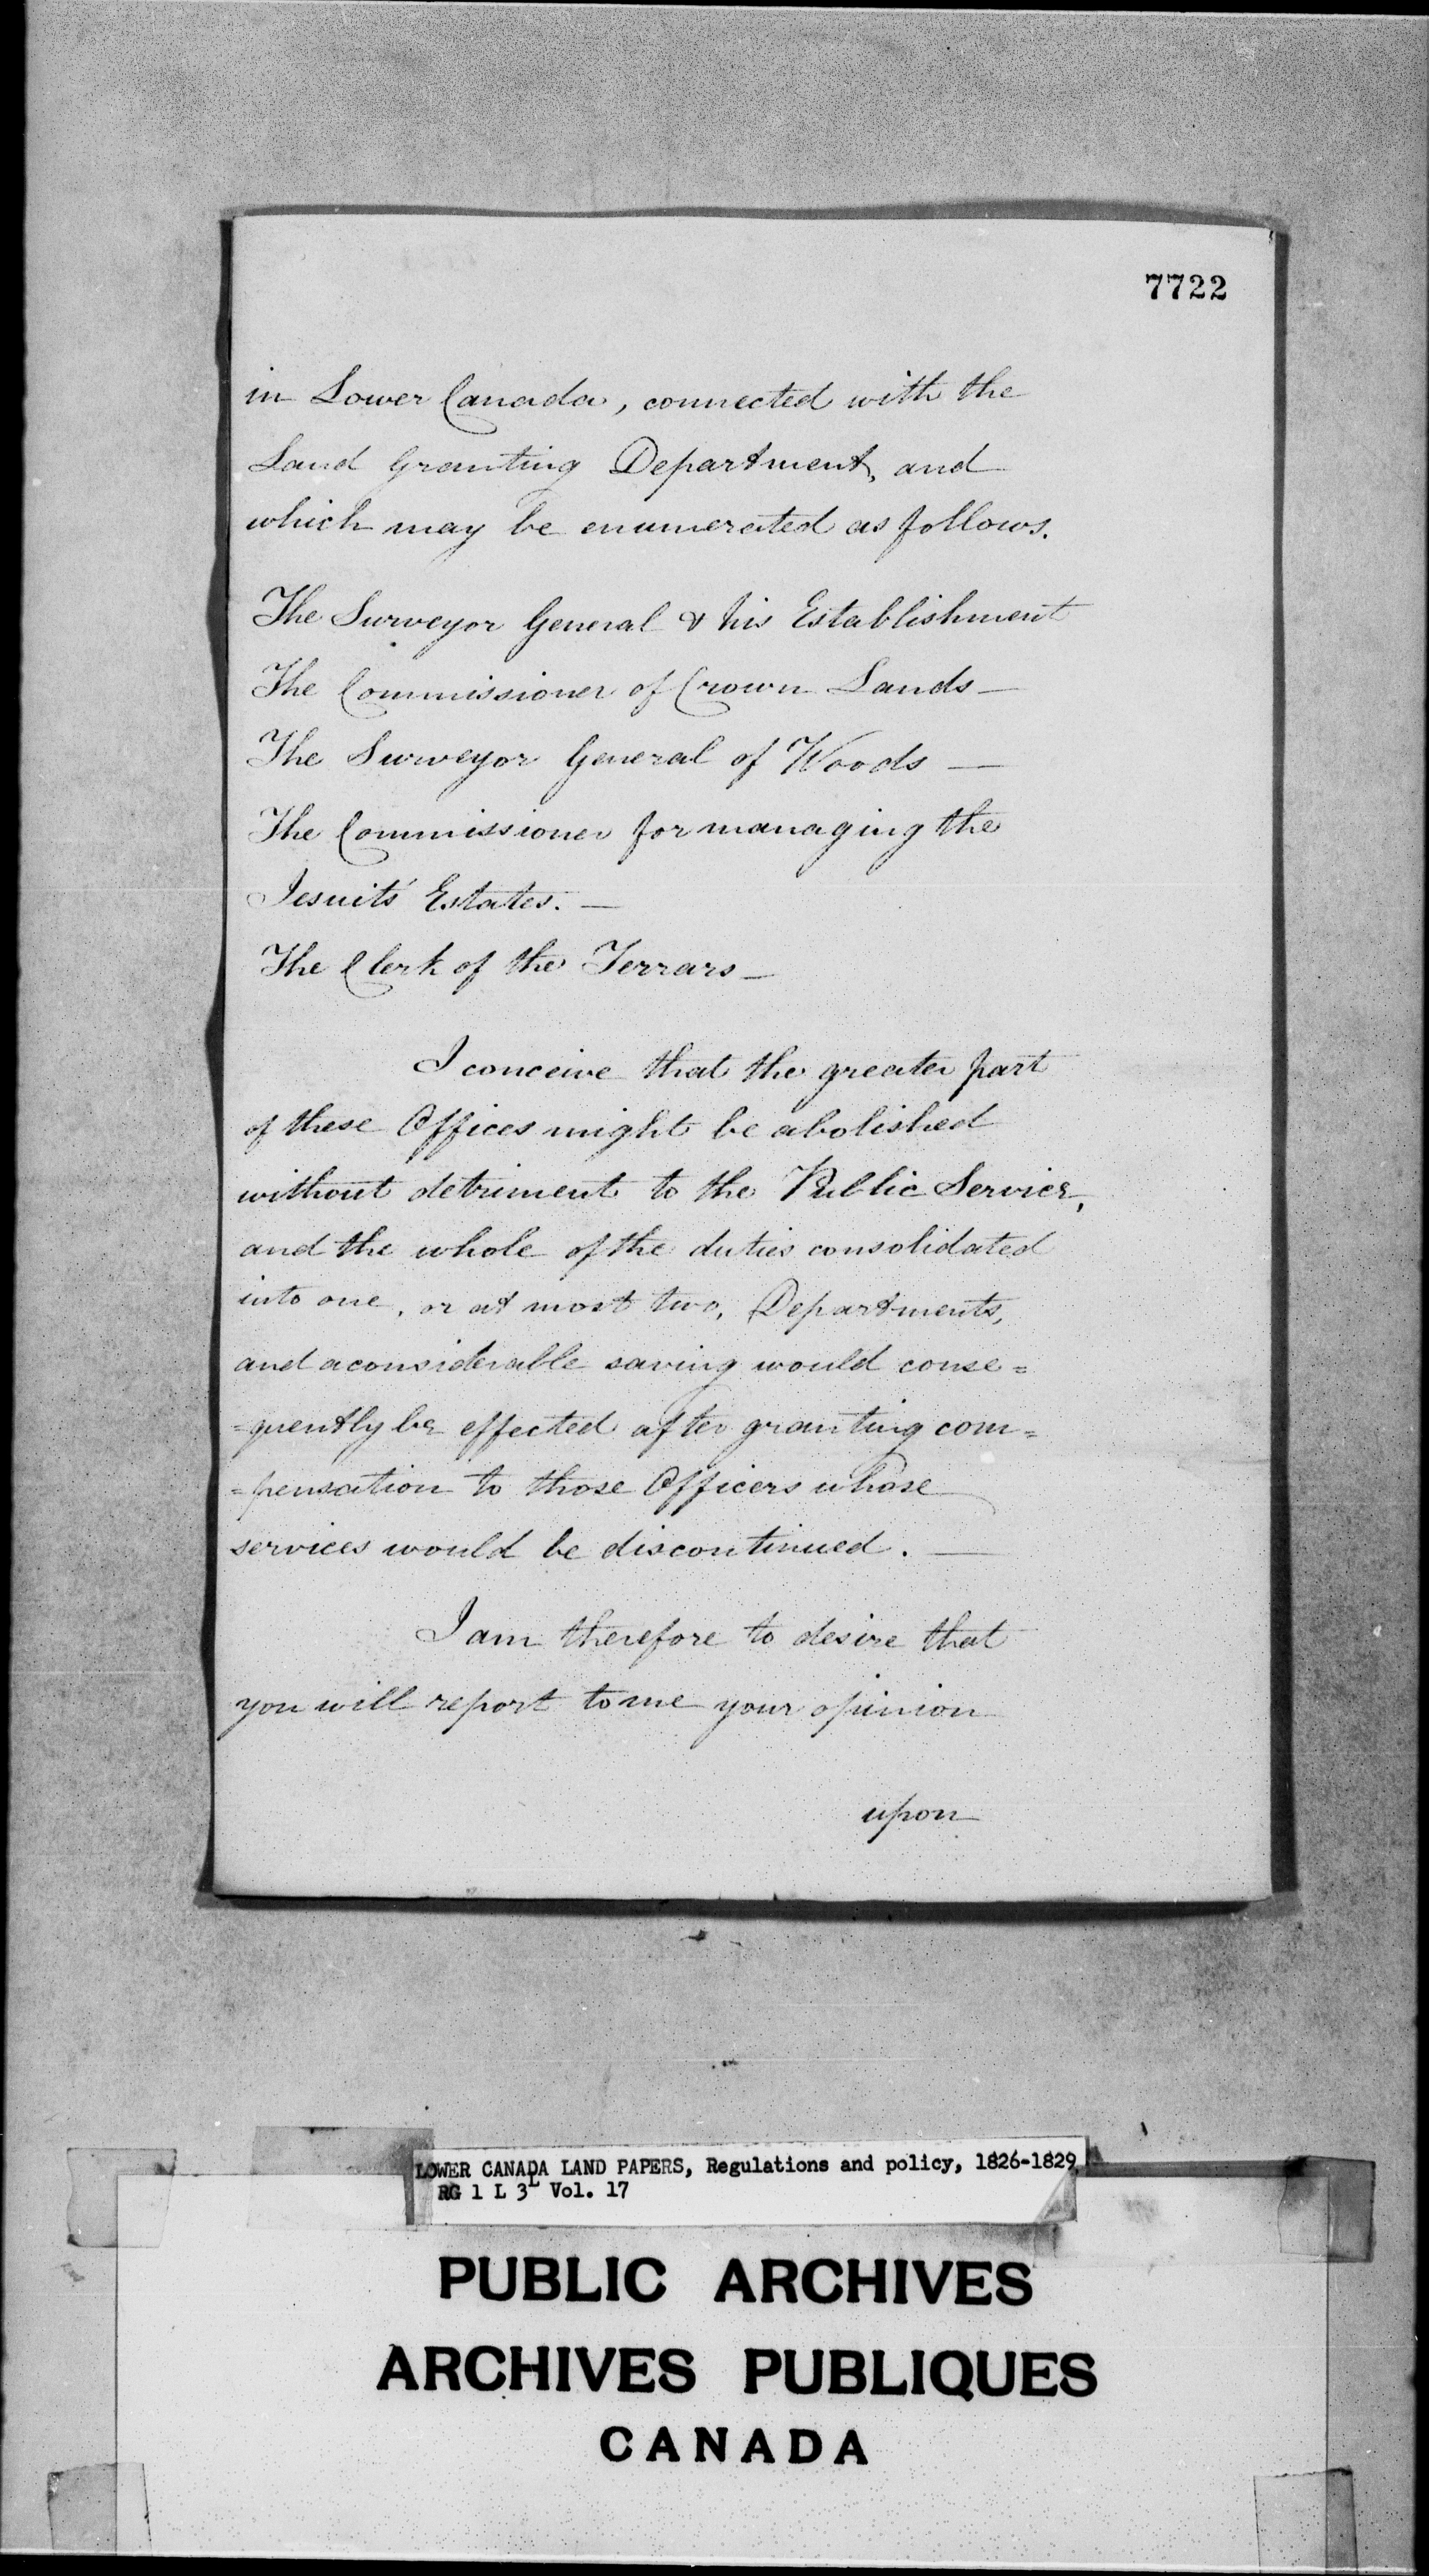 7722
in Lower Canada, connected with the
Land Granting Department, and
which may be enumerated as follows.
The Surveyor General & his Establishment
The Commissioner of Crown Lands —
The Surveyor General of Woods —
The Commissioner for managing the
Jesuits' Estates. —
The Clerk of the Terrars —
I conceive that the greater part
of these Offices might be abolished
without detriment to the Public Service,
and the whole of the duties consolidated
into one, or at most two, Departments,
and a considerable saving would conse=
=quently be effected after granting com=
=pensation to those Officers whose
services would be discontinued. —
I am therefore to desire that
you will report to me your opinion
upon
LOWER CANADA LAND PAPERS, Regulations and policy, 1826-1829
RG 1 L 3L Vol. 17
PUBLIC ARCHIVES
ARCHIVES PUBLIQUES
CANADA